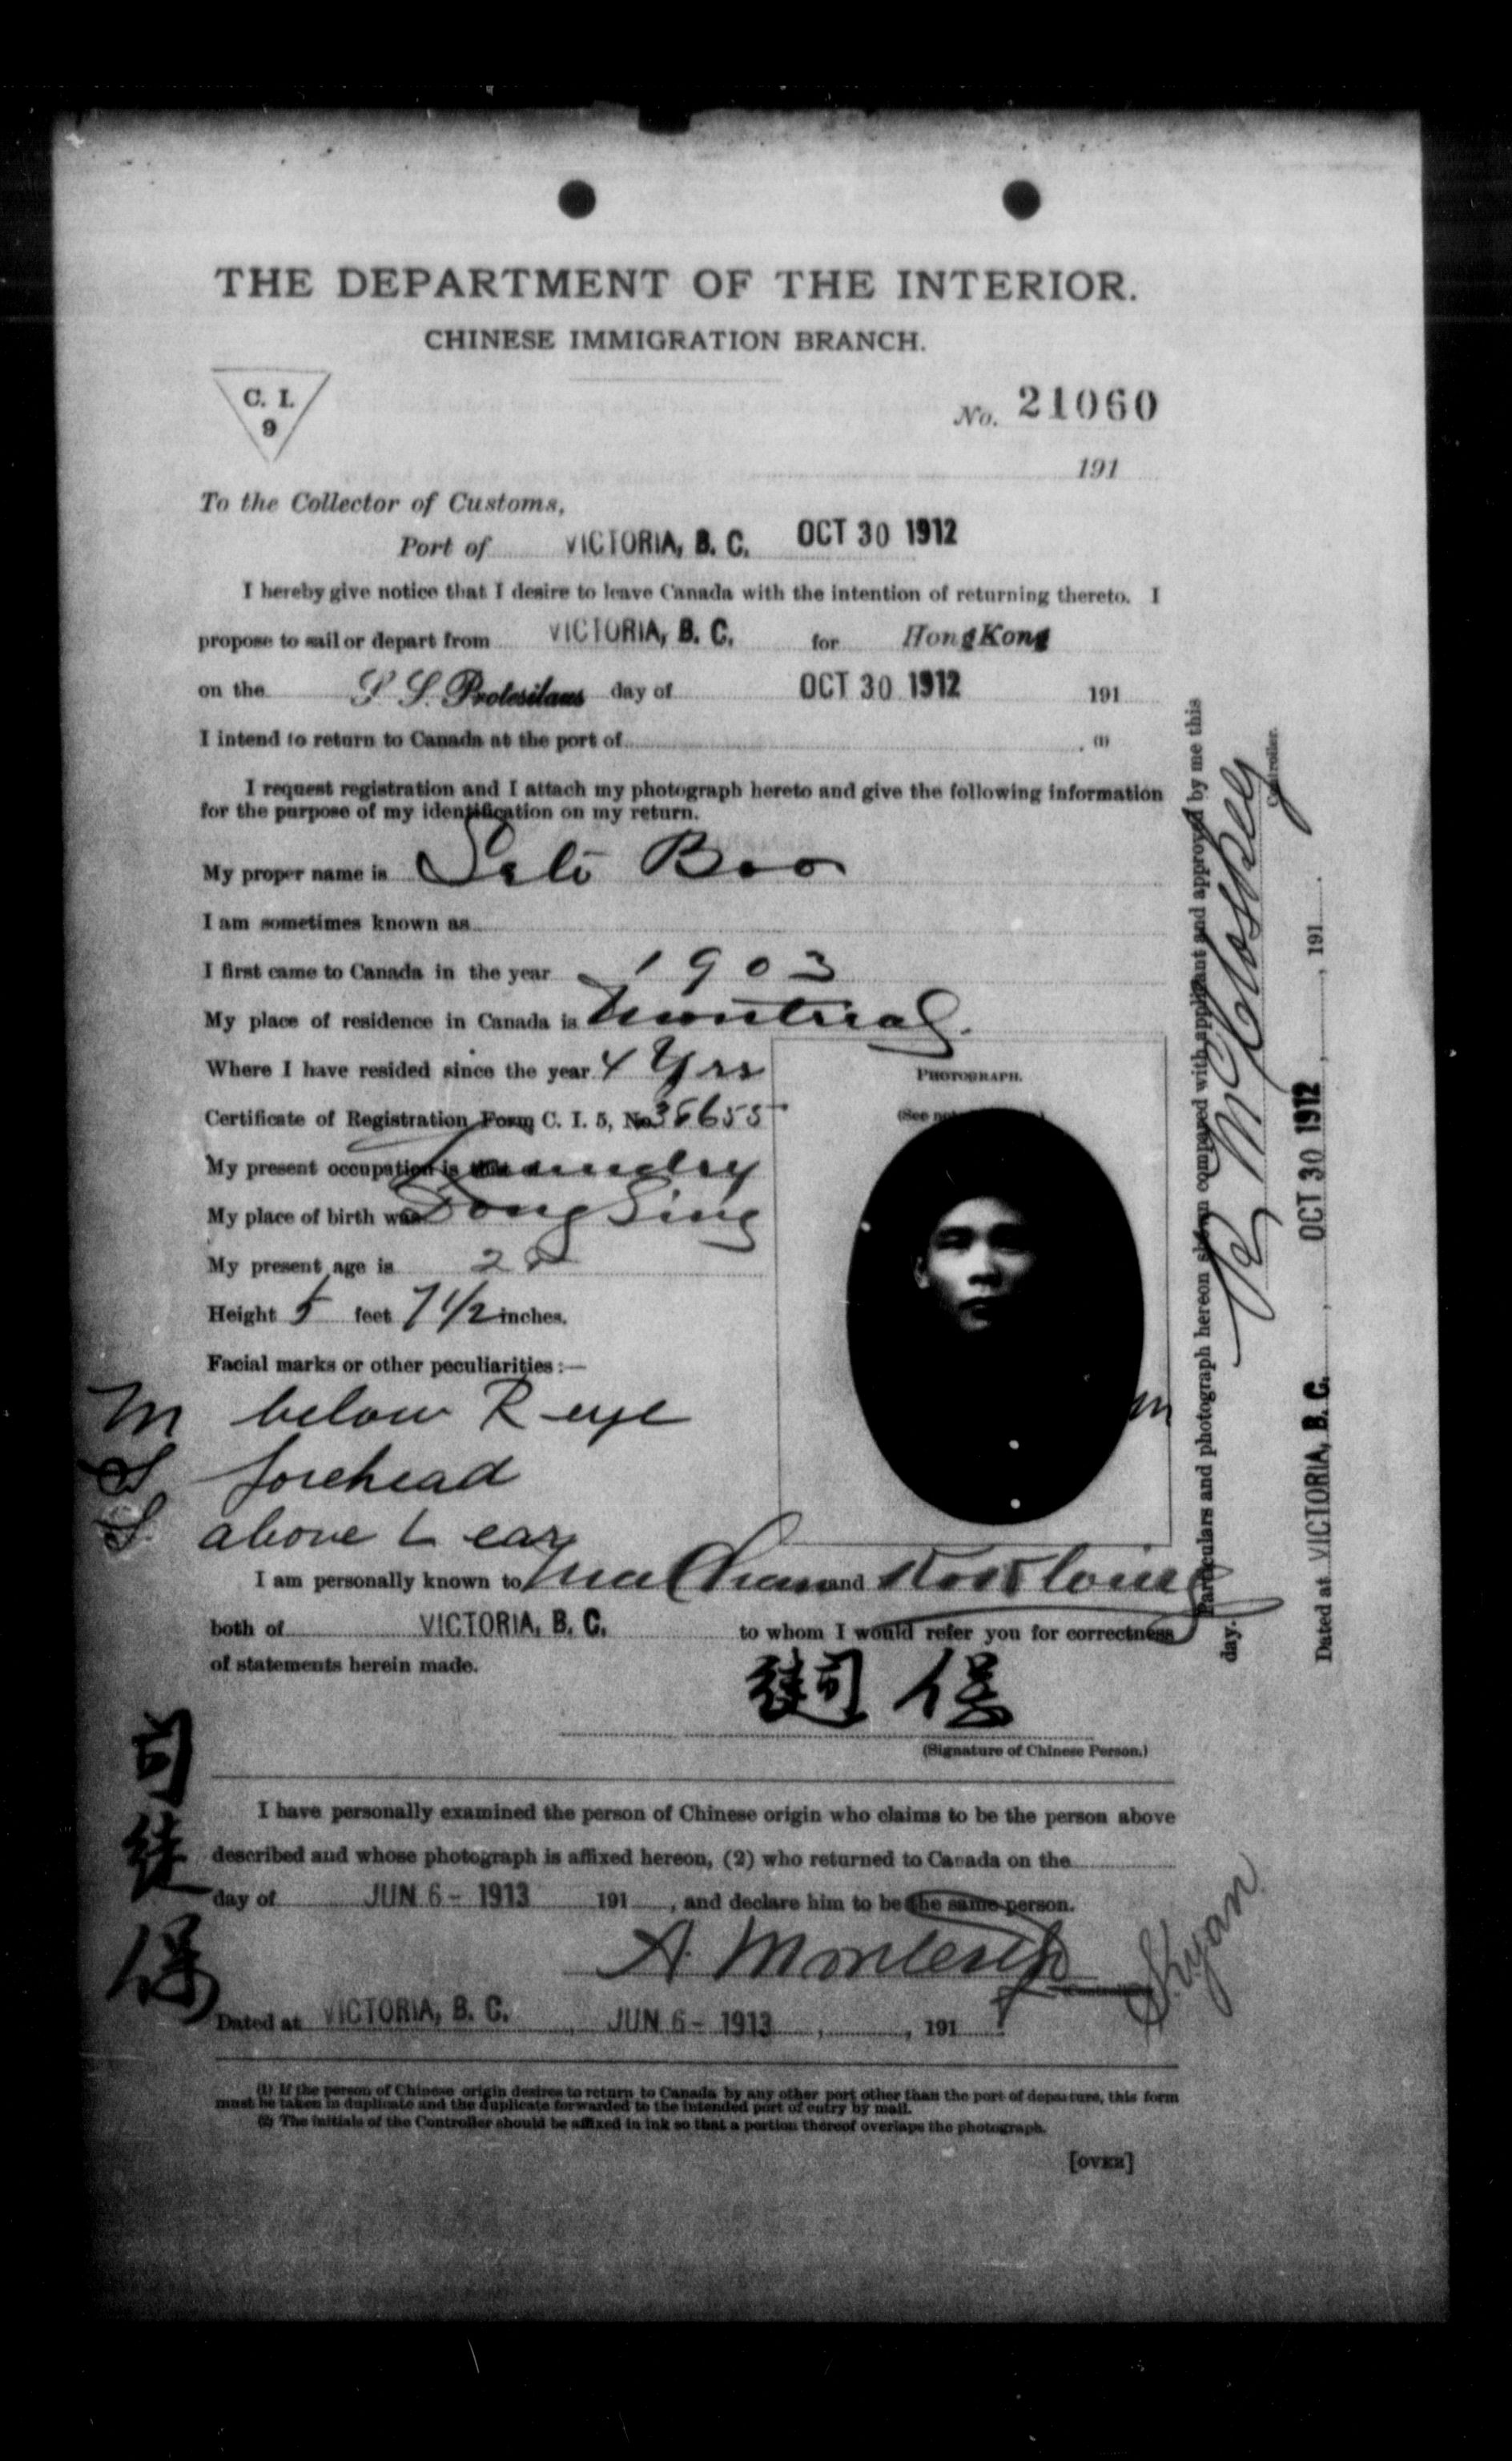 THE DEPARTMENT OF THE INTERIOR.
CHINESE IMMIGRATION BRANCH.
C. I.
9
No. 21060
191
To the Collector of Customs,
Port of VICTORIA, B. C. OCT 30 1912
I hereby give notice that I desire to leave Canada with the intention of returning thereto. I
propose to sail or depart from VICTORIA, B. C. for HongKong
on the S. S. Protesilaus day of OCT 30 1912 191
I intend to return to Canada at the port of . (1)
I request registration and I attach my photograph hereto and give the following information
for the purpose of my identification on my return.
My proper name is Boo
I am sometimes known as
I first came to Canada in the year 1903
My place of residence in Canada is Montreal.
Where I have resided since the year 4 Yrs
PHOTOGRAPH.
Certificate of Registration Form C. I. 5, No.
(See
My present occupation is Laundry
My place of birth was Sing
My present age is
Height 5 feet 7 1/2 inches.
Facial marks or other peculiarities :—
M below R eye
S forehead
S. above L ear
I am personally known to and
both of VICTORIA, B. C. to whom I would refer you for correctness
of statements herein made.
司徒 保
(Signature of Chinese Person.)
司徒保
I have personally examined the person of Chinese origin who claims to be the person above
described and whose photograph is affixed hereon, (2) who returned to Canada on the
day of JUN 6 - 1913 191 , and declare him to be the same person.
A.
Dated at VICTORIA, B. C. , JUN 6 - 1913 , , 191
(1) If the person of Chinese origin desires to return to Canada by any other port other than the port of departure, this form
must be taken in duplicate and the duplicate forwarded to the intended port of entry by mail.
(2) The initials of the Controller should be affixed in ink so that a portion thereof overlaps the photograph.
[OVER]
Particulars and photograph hereon shown compared with applicant and approved by me this
day.
Controller.
Dated at VICTORIA, B. C. , OCT 30 1912 , , 191 .